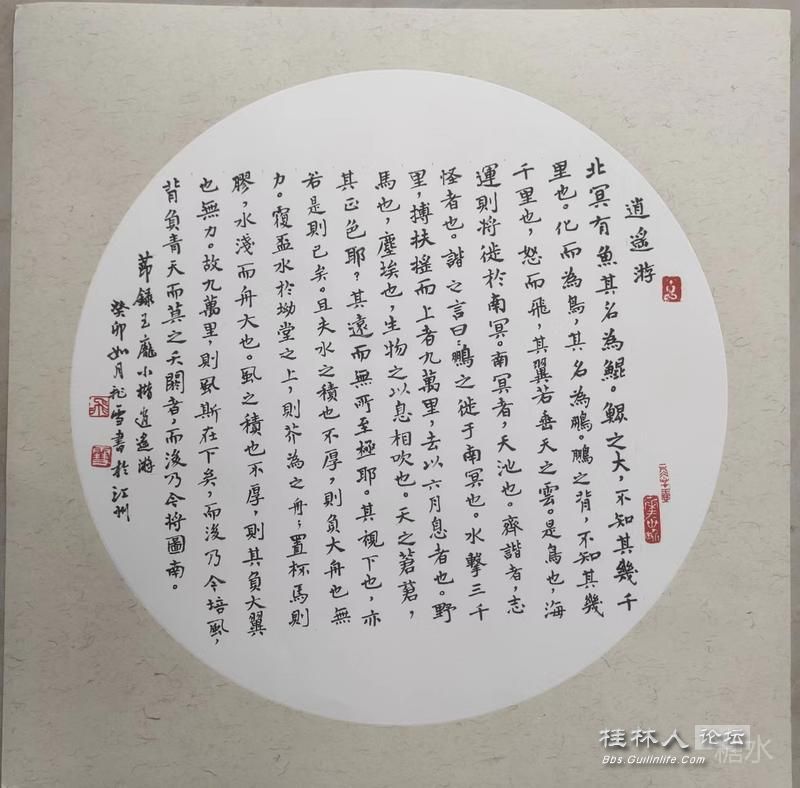 逍遥游
北冥有魚其名為鯤。鯤之大，不知其幾千
里也。化而為鳥，其名為鵬。鵬之背，不知其幾
千里也，怒而飛，其翼若垂天之雲。是鳥也，海
運則将徙於南冥。南冥者，天池也。齊諧者，志
怪者也。諧之言曰：鵬之徙于南冥也。水擊三千
里，摶扶搖而上者九萬里，去以六月息者也。野
馬也，塵埃也，生物之以息相吹也。天之蒼蒼，
其正色耶？其遠而無所至極耶。其視下也，亦
若是則已矣。且夫水之積也不厚，則負大舟也無
力。覆盃水於坳堂之上，則芥為之舟；置杯焉則
膠，水淺而舟大也。風之積也不厚，則其負大翼
也無力。故九萬里，則風斯在下矣，而後乃今培風，
背負青天而莫之夭閼者，而後乃今将圖南。
節録王寵小楷逍遥游
癸卯如月飛雪書於江州
桂林人论坛
Bbs.Guilinlife.Com
糖水